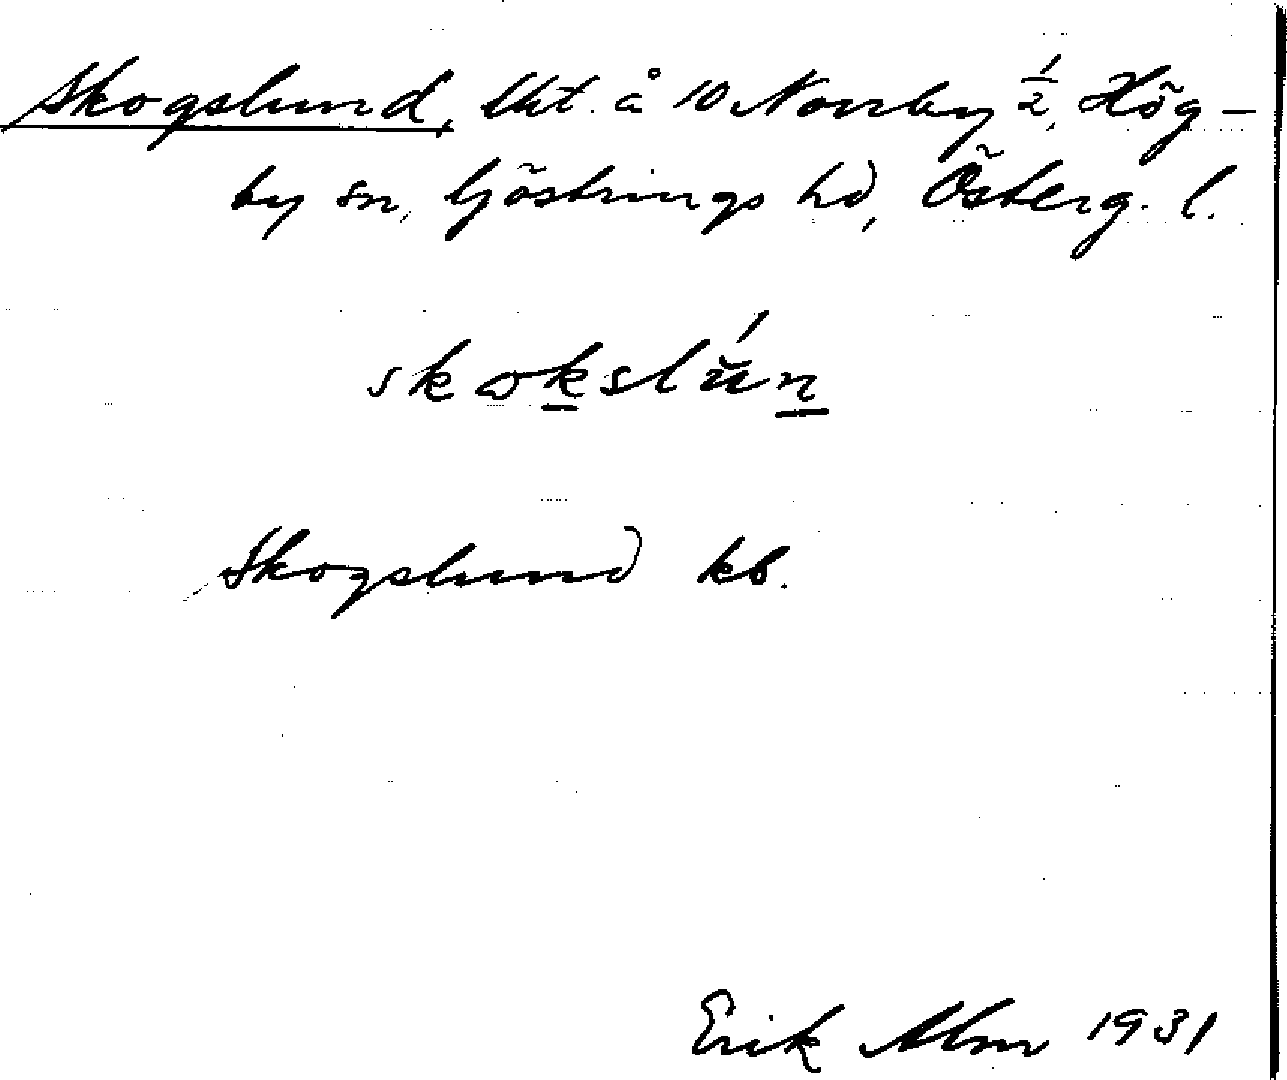 Skogslund, lht. å 10 Norrby 1/2, Hög-
by sn, Göstrings hd, Österg. l.
skɷkslŭ́n
Skogslund kb.
Erik Alm 1931